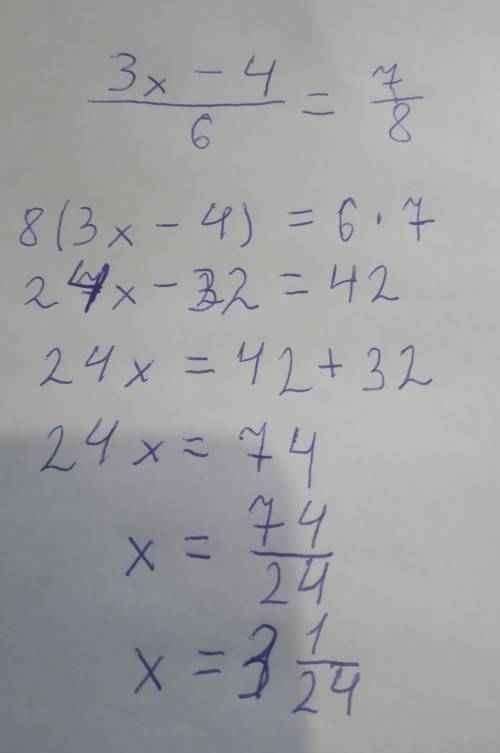 3x - 4 / 6 = 7 / 8
8(3x - 4) = 6 · 7
24x - 32 = 42
24x = 42 + 32
24x = 74
x = 74 / 24
x = 3 1/24